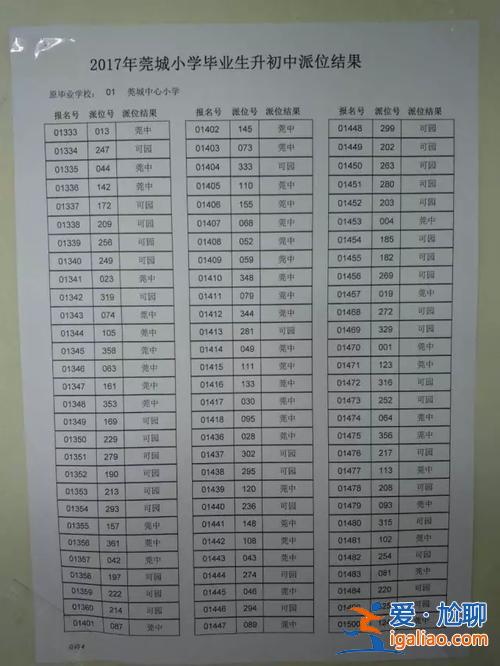 2017年莞城小学毕业生升初中派位结果
原毕业学校: 01 莞城中心小学
报名号 派位号 派位结果 报名号 派位号 派位结果 报名号 派位号 派位结果
01333 013 莞中 01402 145 莞中 01448 299 可园
01334 247 可园 01403 073 莞中 01449 202 可园
01335 044 莞中 01404 333 可园 01450 263 可园
01336 142 莞中 01405 110 莞中 01451 280 可园
01337 172 可园 01406 155 莞中 01452 203 可园
01338 209 可园 01407 068 莞中 01453 004 莞中
01339 256 可园 01408 052 莞中 01454 185 可园
01340 249 可园 01409 059 莞中 01455 182 可园
01341 023 莞中 01410 348 莞中 01456 269 可园
01342 319 可园 01411 079 莞中 01457 019 莞中
01343 074 莞中 01412 344 莞中 01468 272 可园
01344 105 莞中 01413 281 可园 01469 329 可园
01345 358 莞中 01414 049 莞中 01470 001 莞中
01346 063 莞中 01415 111 莞中 01471 123 莞中
01347 161 莞中 01416 133 莞中 01472 316 可园
01348 353 莞中 01417 030 莞中 01473 252 可园
01349 169 可园 01418 095 莞中 01474 064 莞中
01350 229 可园 01436 028 莞中 01475 356 莞中
01351 279 可园 01437 302 可园 01476 217 可园
01352 190 可园 01438 295 可园 01477 113 莞中
01353 213 可园 01439 120 莞中 01478 208 可园
01354 293 可园 01440 236 可园 01479 093 莞中
01355 157 莞中 01441 148 莞中 01480 315 可园
01356 361 莞中 01442 108 莞中 01481 102 莞中
01357 042 莞中 01443 043 莞中 01482 254 可园
01358 197 可园 01444 274 可园 01483 081 莞中
01359 222 可园 01445 027 莞中 01484 220 可园
01360 214 可园 01446 294 可园
01401 087 莞中 01447 089 莞中 01500
爱·尬聊
igaliao.com